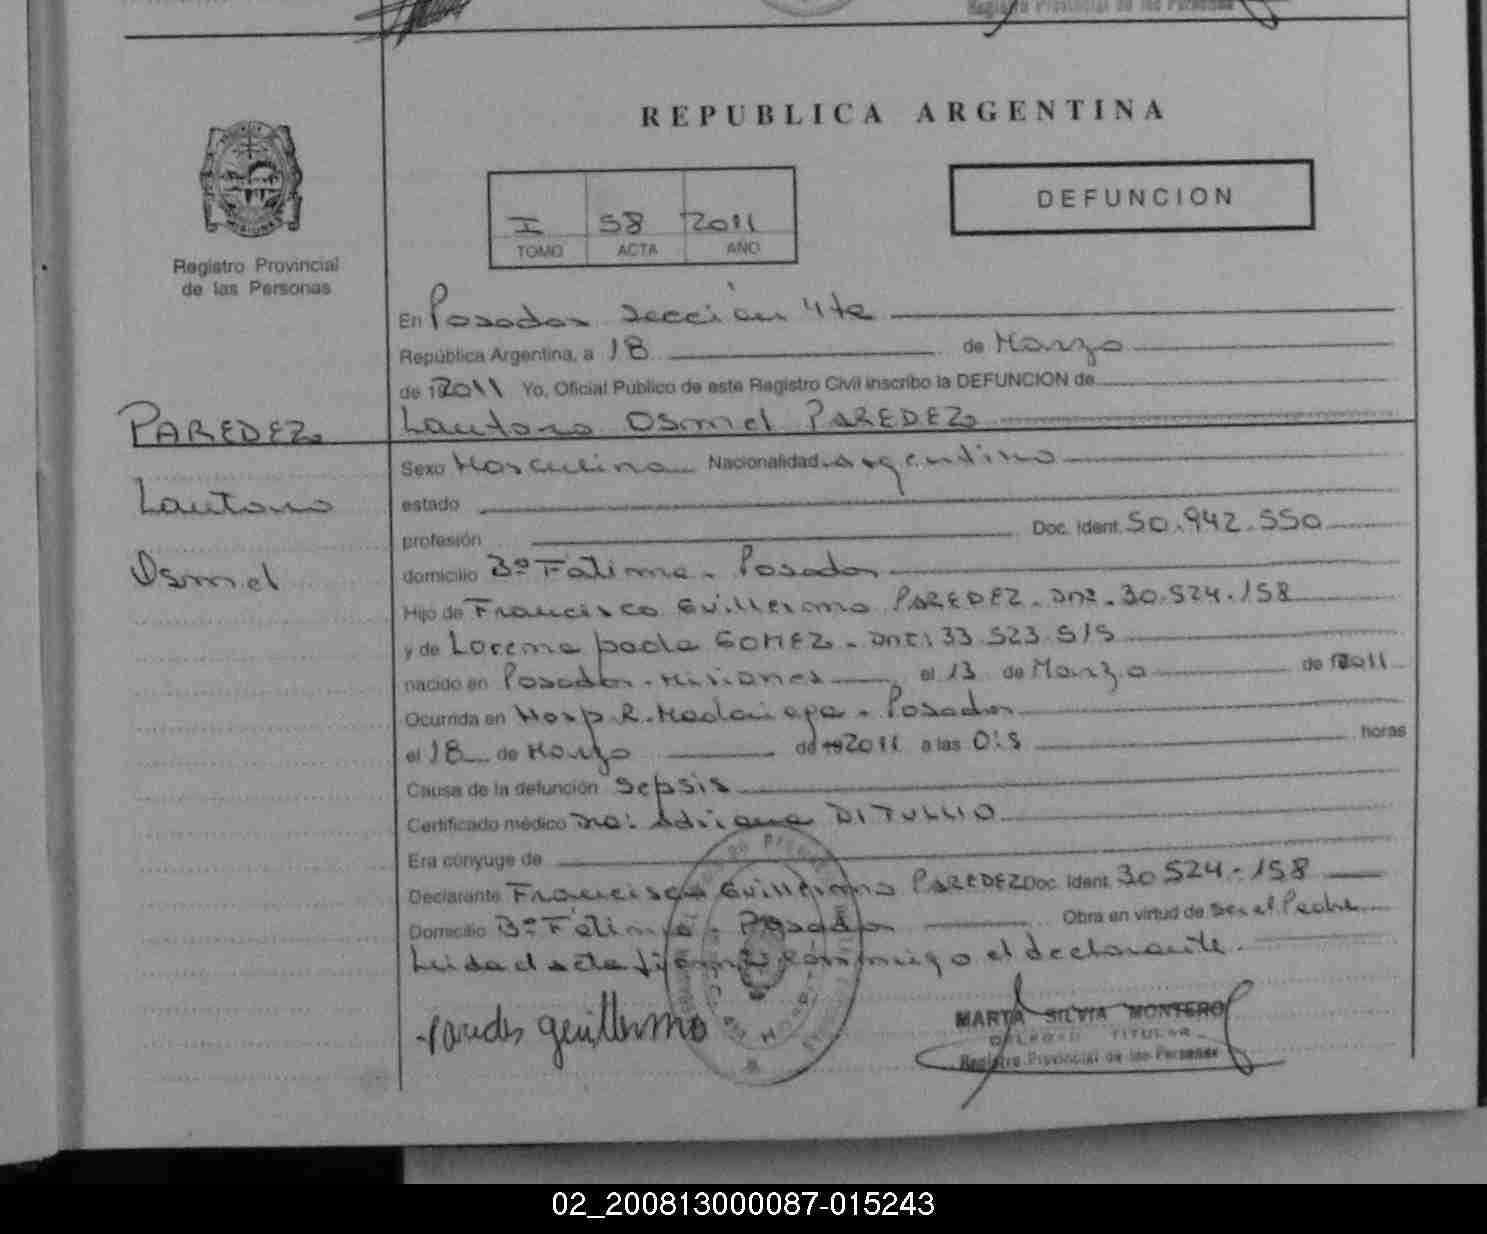 Registro Provincial de las Personas
REPUBLICA ARGENTINA
MISIONES
Registro Provincial
de las Personas
I 58 2011
TOMO ACTA AÑO
DEFUNCION
En Posadas sección 4ta
República Argentina, a 18 de Marzo
de 2011 Yo, Oficial Público de este Registro Civil inscribo la DEFUNCION de
PAREDEZ
Lautaro
Osmel
Lautaro Osmel PAREDEZ
Sexo Masculino Nacionalidad Argentino
estado
profesión Doc. Ident. 50.942.550
domicilio Bº Fátima. Posadas
Hijo de Francisco Guillermo PAREDEZ. DNI. 30.524.158
y de Lorena paola GOMEZ. DNI: 33.523.515
nacido en Posadas. Misiones el 13 de Marzo de 2011
Ocurrida en Hosp. R. Madariaga. Posadas
el 18 de Marzo de 2011 a las 0:5 horas
Causa de la defunción Sepsis
Certificado médico Dra: Adriana DI TULLIO
Era cónyuge de
Declarante Francisco Guillermo PAREDEZ Doc. Ident. 30.524.158
Domicilio Bº Fátima. Posadas Obra en virtud de Ser el Padre
Leida el acta firma conmigo el declarante.
paredes guillermo
MARTA SILVIA MONTERO
TITULAR
Registro Provincial de las Personas
02_200813000087-015243